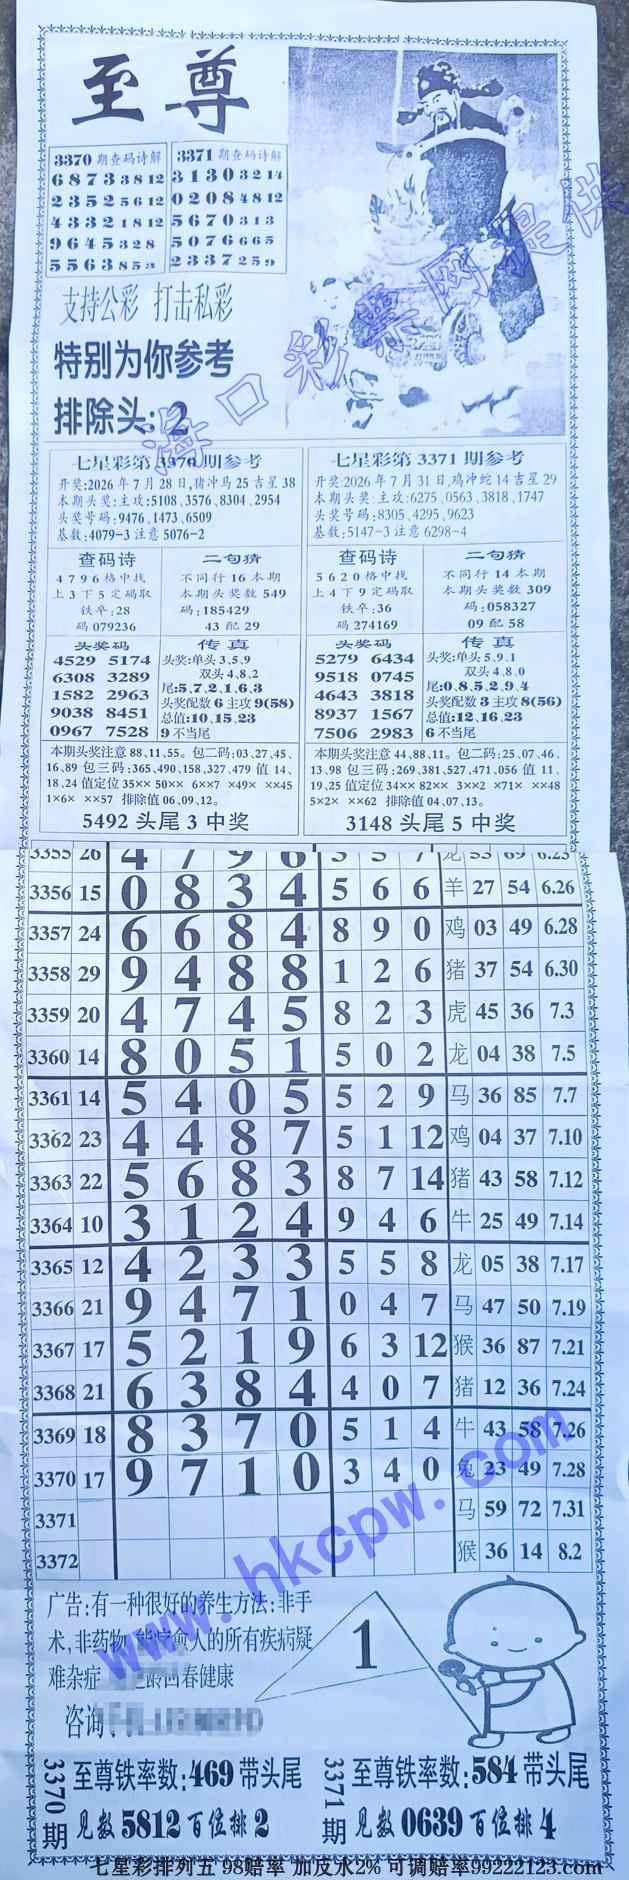 至尊
3370期查码诗解
6 8 7 3 3 8 12
2 3 5 2 5 6 12
4 3 3 2 1 8 12
9 6 4 5 3 2 8
5 5 6 3 8 5 3
3371期查码诗解
3 1 3 0 3 2 14
0 2 0 8 4 8 12
5 6 7 0 3 1 3
5 0 7 6 6 6 5
2 3 3 7 2 5 9
支持公彩 打击私彩
特别为你参考
排除头:2
海口彩票网提供
七星彩第3370期参考
开奖:2026年7月28日,猪冲马25吉星38
本期头奖:主攻:5108、3576、8304、2954
头奖号码:9476、1473、6509
基数:4079-3 注意 5076-2
查码诗
4796格中找
上3下5定码取
铁卒:28
码079236
二句猜
不同行16本期
本期头奖数549
码:185429
43配29
头奖码
4529 5174
6308 3289
1582 2963
9038 8451
0967 7528
传真
头奖:单头3、5、9
双头4、8、2
尾:5、7、2、1、6、3
头奖配数6主攻9(58)
总值:10、15、23
9不当尾
本期头奖注意88、11、55。包二码:03、27、45、
16、89 包三码:365、490、158、327、479 值14、
18、24 值定位35×× 50×× 6××7 ×49× ××45
1×6× ××57 排除值06、09、12。
5492头尾3中奖
七星彩第3371期参考
开奖:2026年7月31日,鸡冲蛇14吉星29
本期头奖:主攻:6275、0563、3818、1747
头奖号码:8305、4295、9623
基数:5147-3 注意 6298-4
查码诗
5620格中找
上4下9定码取
铁卒:36
码274169
二句猜
不同行14本期
本期头奖数309
码:058327
09配58
头奖码
5279 6434
9518 0745
4643 3818
8937 1567
7506 2983
传真
头奖:单头5、9、1
双头4、8、0
尾:0、8、5、2、9、4
头奖配数3主攻8(56)
总值:12、16、23
6不当尾
本期头奖注意44、88、11。包二码:25、07、46、
13、98 包三码:269、381、527、471、056 值11、
19、25 值定位34×× 82×× 3××2 ×71× ××48
5×2× ××62 排除值04、07、13。
3148头尾5中奖
3355 26 4 7 9 6 3 5 7 龙 53 69 6.23
3356 15 0 8 3 4 5 6 6 羊 27 54 6.26
3357 24 6 6 8 4 8 9 0 鸡 03 49 6.28
3358 29 9 4 8 8 1 2 6 猪 37 54 6.30
3359 20 4 7 4 5 8 2 3 虎 45 36 7.3
3360 14 8 0 5 1 5 0 2 龙 04 38 7.5
3361 14 5 4 0 5 5 2 9 马 36 85 7.7
3362 23 4 4 8 7 5 1 12 鸡 04 37 7.10
3363 22 5 6 8 3 8 7 14 猪 43 58 7.12
3364 10 3 1 2 4 9 4 6 牛 25 49 7.14
3365 12 4 2 3 3 5 5 8 龙 05 38 7.17
3366 21 9 4 7 1 0 4 7 马 47 50 7.19
3367 17 5 2 1 9 6 3 12 猴 36 87 7.21
3368 21 6 3 8 4 4 0 7 猪 12 36 7.24
3369 18 8 3 7 0 5 1 4 牛 43 58 7.26
3370 17 9 7 1 0 3 4 0 兔 23 49 7.28
3371 马 59 72 7.31
3372 猴 36 14 8.2
www.hkcpw.com
广告:有一种很好的养生方法:非手
术,非药物,能疗愈人的所有疾病疑
难杂症 龄回春健康
咨询
1
3370期
至尊铁率数:469带头尾
见数5812百位排2
3371期
至尊铁率数:584带头尾
见数0639百位排4
七星彩排列五 98赔率 加反水2% 可调赔率99222123.com